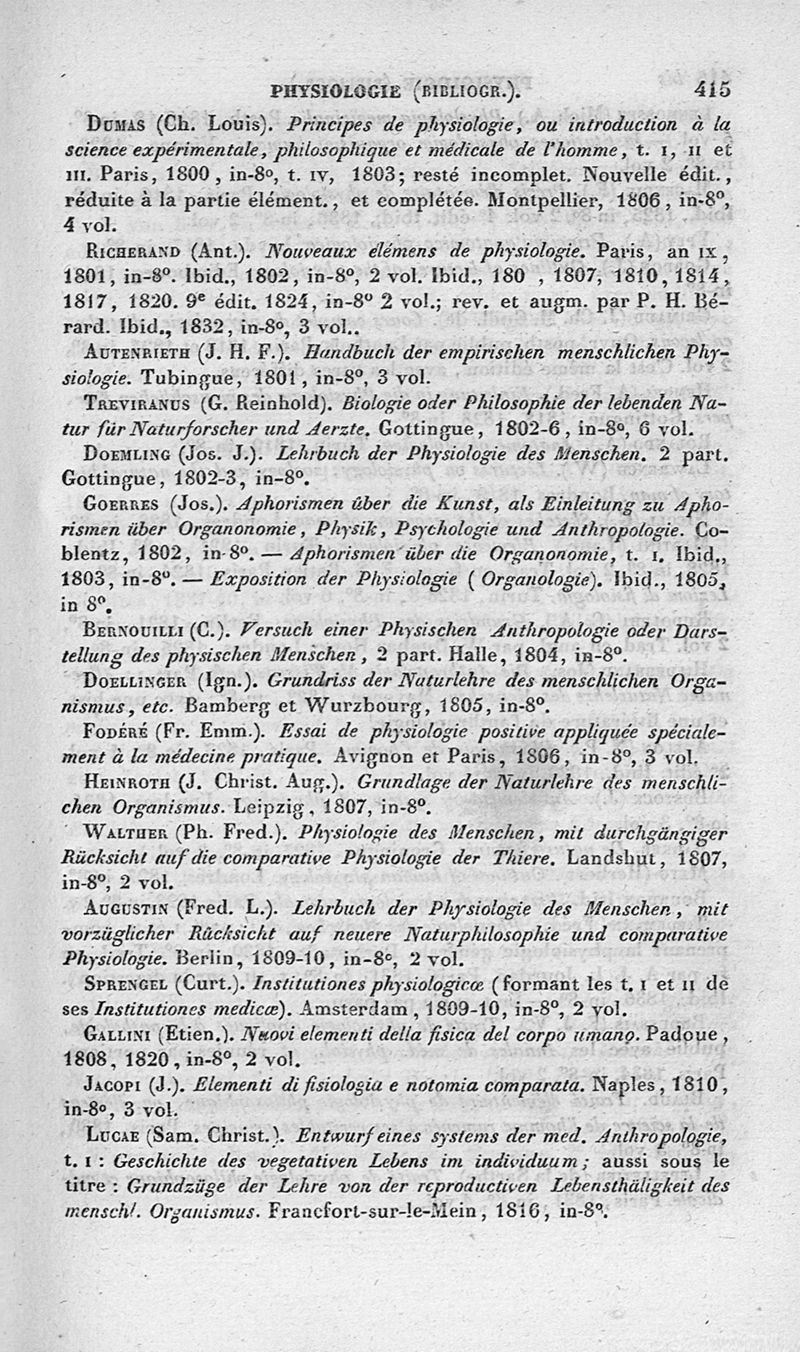 PHYSIOLOGIE (BIBLIOGR.). 415
DUMAS (Ch. Louis). Principes de physiologie, ou introduction à la
science expérimentale, philosophique et médicale de l'homme, t. I, II et
III. Paris, 1800, in-8º, t. IV, 1803; resté incomplet. Nouvelle édit.,
réduite à la partie élément., et complétée. Montpellier, 1806, in-8º,
4 vol.
RICHERAND (Ant.). Nouveaux élémens de physiologie. Paris, an IX,
1801, in-8º. Ibid., 1802, in-8º, 2 vol. Ibid., 180 , 1807, 1810, 1814,
1817, 1820. 9e édit. 1824, in-8º 2 vol.; rev. et augm. par P. H. Bé-
rard. Ibid., 1832, in-8º, 3 vol..
AUTENRIETH (J. H. F.). Handbuch der empirischen menschlichen Phy-
siologie. Tubingue, 1801, in-8º, 3 vol.
TREVIRANUS (G. Reinhold). Biologie oder Philosophie der lebenden Na-
tur für Naturforscher und Aerzte. Gottingue, 1802-6, in-8º, 6 vol.
DOEMLING (Jos. J.). Lehrbuch der Physiologie des Menschen. 2 part.
Gottingue, 1802-3, in-8º.
GOERRES (Jos.). Aphorismen über die Kunst, als Einleitung zu Apho-
rismen über Organonomie, Physik, Psychologie und Anthropologie. Co-
blentz, 1802, in-8º. — Aphorismen über die Organonomie, t. I. Ibid.,
1803, in-8º. — Exposition der Physiologie (Organologie). Ibid., 1805,
in 8º.
BERNOUILLI (C.). Versuch einer Physischen Anthropologie oder Dars-
tellung des physischen Menschen, 2 part. Halle, 1804, in-8º.
DOELLINGER (Ign.). Grundriss der Naturlehre des menschlichen Orga-
nismus, etc. Bamberg et Wurzbourg, 1805, in-8º.
FODÉRÉ (Fr. Emm.). Essai de physiologie positive appliquée spéciale-
ment à la médecine pratique. Avignon et Paris, 1806, in-8º, 3 vol.
HEINROTH (J. Christ. Aug.). Grundlage der Naturlehre des menschli-
chen Organismus. Leipzig, 1807, in-8º.
WALTHER (Ph. Fred.). Physiologie des Menschen, mit durchgängiger
Rücksicht auf die comparative Physiologie der Thiere. Landshut, 1807,
in-8º, 2 vol.
AUGUSTIN (Fred. L.). Lehrbuch der Physiologie des Menschen, mit
vorzüglicher Rücksicht auf neuere Naturphilosophie und comparative
Physiologie. Berlin, 1809-10, in-8º, 2 vol.
SPRENGEL (Curt.). Institutiones physiologicæ (formant les t. I et II de
ses Institutiones medicæ). Amsterdam, 1809-10, in-8º, 2 vol.
GALLINI (Etien.). Nuovi elementi della fisica del corpo umano. Padoue,
1808, 1820, in-8º, 2 vol.
JACOPI (J.). Elementi di fisiologia e notomia comparata. Naples, 1810,
in-8º, 3 vol.
LUCAE (Sam. Christ.). Entwurf eines systems der med. Anthropologie,
t. I : Geschichte des vegetativen Lebens im individuum; aussi sous le
titre : Grundzüge der Lehre von der reproductiven Lebensthäligkeit des
menschl. Organismus. Francfort-sur-le-Mein, 1816, in-8º.